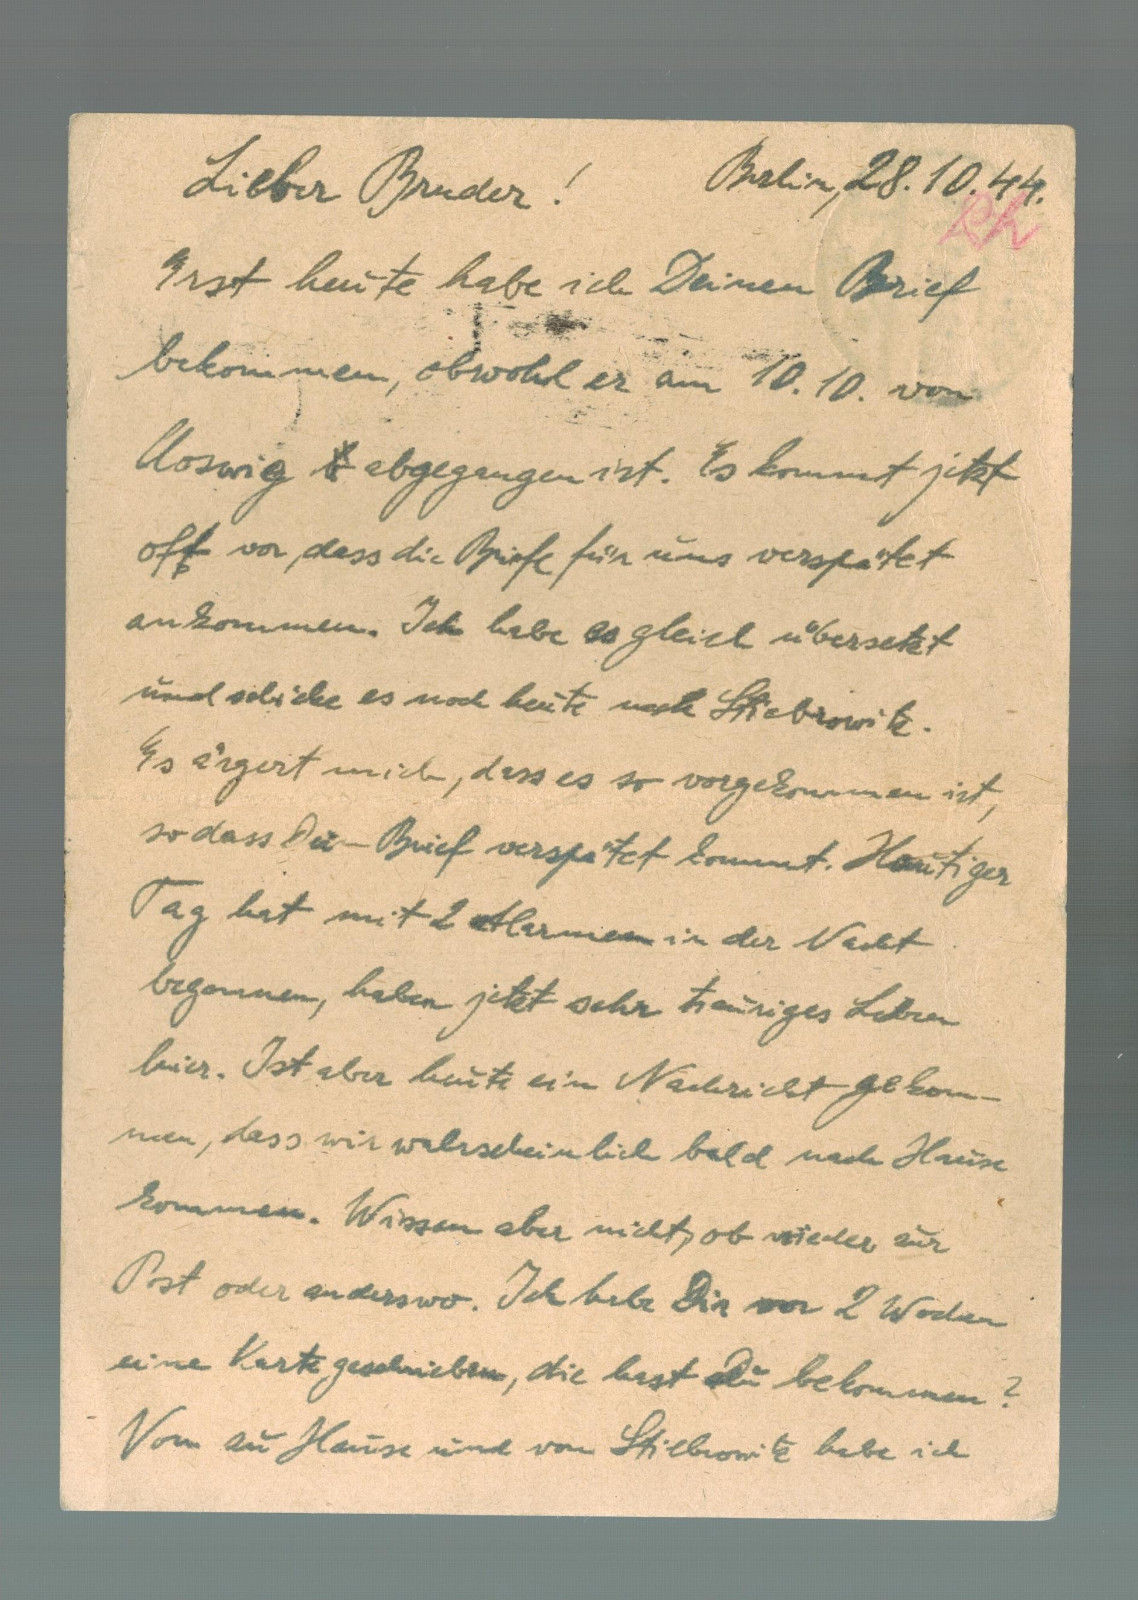 Lieber Bruder! Berlin, 28.10.44.
Rh
Erst heute habe ich Deinen Brief
bekommen, obwohl er am 10.10. von
abgegangen ist. Es kommt jetzt
oft vor, dass die Briefe für uns verspätet
ankommen. Ich habe es gleich übersetzt
und schicke es noch heute nach Stiebrowitz.
Es ärgert mich, dass es so vorgekommen ist,
so dass Brief verspätet kommt. Heutiger
Tag hat mit 2 Alarmen in der Nacht
begonnen, haben jetzt sehr trauriges Leben
hier. Ist aber heute ein Nachricht gekom-
men, dass wir wahrscheinlich bald nach Hause
kommen. Wissen aber nicht, ob wieder zur
Post oder anderswo. Ich habe Dir vor 2 Wochen
eine Karte geschrieben, die hast Du bekommen?
Von zu Hause und von Stiebrowitz habe ich